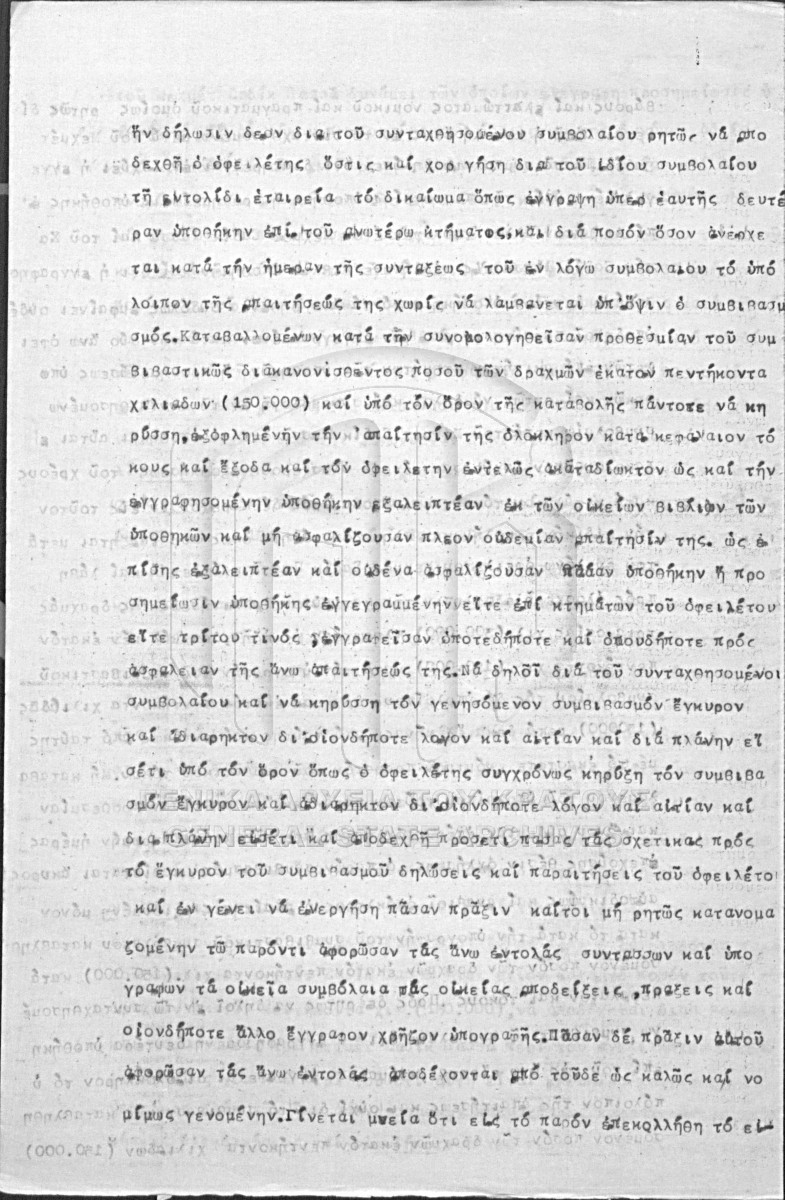 ἥν δήλωσιν δέον διά τοῦ συνταχθησομένου συμβολαίου ρητῶς νά ἀπο
δεχθῆ ὁ ὀφειλέτης ὅστις καί χορ γήση διά τοῦ ἰδίου συμβολαίου
τῆ ἐντολίδι ἑταιρεία τό δικαίωμα ὅπως ἐγγραψη ὑπέρ ἑαυτῆς δευτέ
ραν ὑποθήκην ἐπί τοῦ ἀνωτέρω κτήματος,καί διά ποσόν ὅσον ἀνέρχε
ται κατά τήν ἡμέραν τῆς συντάξεως τοῦ ἐν λόγω συμβολαίου τό ὑπό
λοιπον τῆς ἀπαιτήσεώς της χωρίς νά λαμβάνεται ὑπ'ὄψιν ὁ συμβιβασμ
σμός.Καταβαλλομένων κατά τήν συνομολογηθεῖσαν προθεσμίαν τοῦ συμ
βιβαστικῶς διακανονισθέντος ποσοῦ τῶν δραχμῶν ἑκατόν πεντήκοντα
χιλιάδων (150.000) καί ὑπό τόν ὅρον τῆς καταβολῆς πάντοτε νά κη
ρύσση,ἐξοφλημένην τήν ἀπαίτησίν τῆς ὁλόκληρον κατά κεφάλαιον τό
κους καί ἔξοδα καί τόν ὀφειλέτην ἐντελῶς ἀκαταδίωκτον ὡς καί τήν
ἐγγραφησομένην ὑποθήκην ἐξαλειπτέαν ἐκ τῶν οἰκείων βιβλίων τῶν
ὑποθηκῶν καί μή ἀσφαλίζουσαν πλέον οὐδεμίαν ἀπαίτησίν της. ὡς ἐ
πίσης ἐξαλειπτέαν καί οὐδένα ἀσφαλίζουσαν πᾶσαν ὑποθήκην ἤ προ
σημείωσιν ὑποθήκης ἐγγεγραμμένην εἴτε ἐπί κτημάτων τοῦ ὀφειλέτου
εἴτε τρίτου τινός ἐγγραφεῖσαν ὁποτεδήποτε καί ὁπουδήποτε πρός
ἀσφάλειαν τῆς ἄνω ἀπαιτήσεώς της.Νά δηλοῖ διά τοῦ συνταχθησομένοι
συμβολαίου καί νά κηρύσση τόν γενησόμενον συμβιβασμόν ἔγκυρον
καί ἀδιάρηκτον δι'οἱονδήποτε λόγον καί αἰτίαν καί διά πλάνην εἰ
σέτι ὑπό τόν ὅρον ὅπως ὁ ὀφειλέτης συγχρόνως κηρύξη τόν συμβιβα
σμόν ἔγκυρον καί ἀδιάρηκτον δι'οἱονδήποτε λόγον καί αἰτίαν καί
διά πλάνην εἰσέτι καί ἀποδεχθῆ προσέτι πάσας τάς σχετικάς πρός
τό ἔγκυρον τοῦ συμβιβασμοῦ δηλώσεις καί παραιτήσεις τοῦ ὀφειλέτο
καί ἐν γένει νά ἐνεργήση πᾶσαν πρᾶξιν καίτοι μή ρητῶς κατανομα
ζομένην τῶ παρόντι ἀφορῶσαν τάς ἄνω ἐντολάς συντάσσων καί ὑπο
γράφων τά οἰκεῖα συμβόλαια τάς οἰκείας ἀποδείξεις ,πράξεις καί
οἱονδήποτε ἄλλο ἔγγραφον χρῆζον ὑπογραφῆς.Πᾶσαν δέ πρᾶξιν αὐτοῦ
ἀφορῶσαν τάς ἄνω ἐντολάς ἀποδέχονται ἀπό τοῦδε ὡς καλῶς καί νο
μίμως γενομένην.Γίνεται μνεία ὅτι εἰς τό παρόν ἐπεκολλήθη τό εἰ-
ΓΕΝΙΚΑ ΑΡΧΕΙΑ ΤΟΥ ΚΡΑΤΟΥΣ
GENERAL STATE ARCHIVES